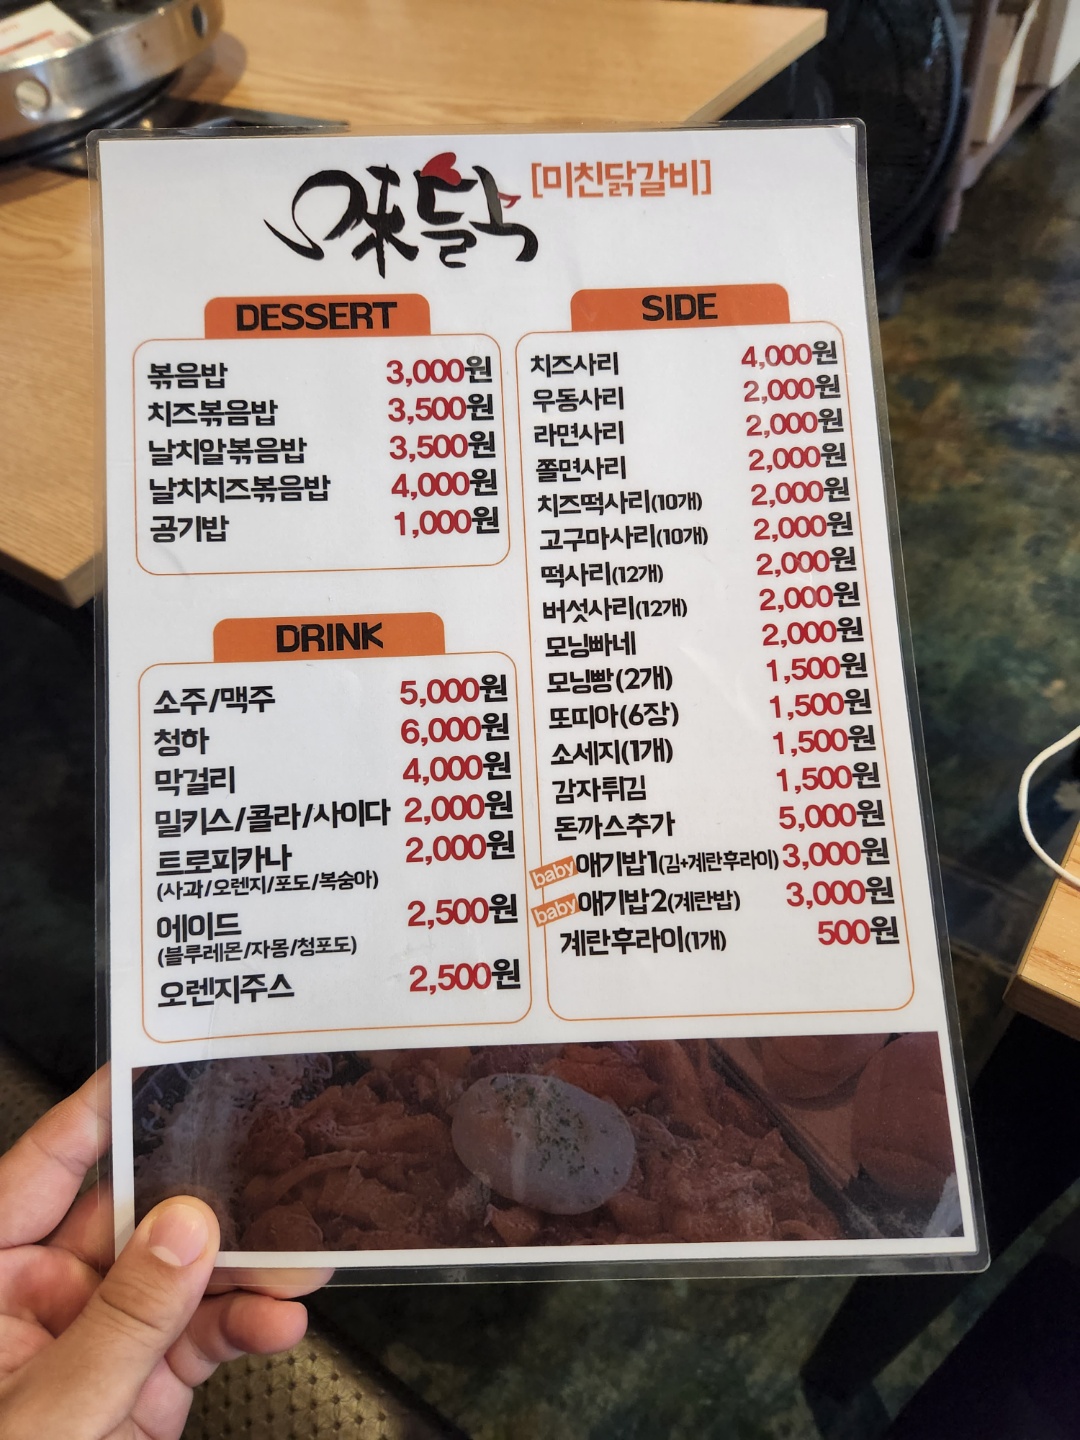 味들닭 [미친닭갈비]
DESSERT
볶음밥 3,000원
치즈볶음밥 3,500원
날치알볶음밥 3,500원
날치치즈볶음밥 4,000원
공기밥 1,000원
DRINK
소주/맥주 5,000원
청하 6,000원
막걸리 4,000원
밀키스/콜라/사이다 2,000원
트로피카나 2,000원
(사과/오렌지/포도/복숭아)
에이드 2,500원
(블루레몬/자몽/청포도)
오렌지주스 2,500원
SIDE
치즈사리 4,000원
우동사리 2,000원
라면사리 2,000원
쫄면사리 2,000원
치즈떡사리(10개) 2,000원
고구마사리(10개) 2,000원
떡사리(12개) 2,000원
버섯사리(12개) 2,000원
모닝빠네 2,000원
모닝빵(2개) 1,500원
또띠아(6장) 1,500원
소세지(1개) 1,500원
감자튀김 1,500원
돈까스추가 5,000원
baby 애기밥1(김+계란후라이) 3,000원
baby 애기밥2(계란밥) 3,000원
계란후라이(1개) 500원